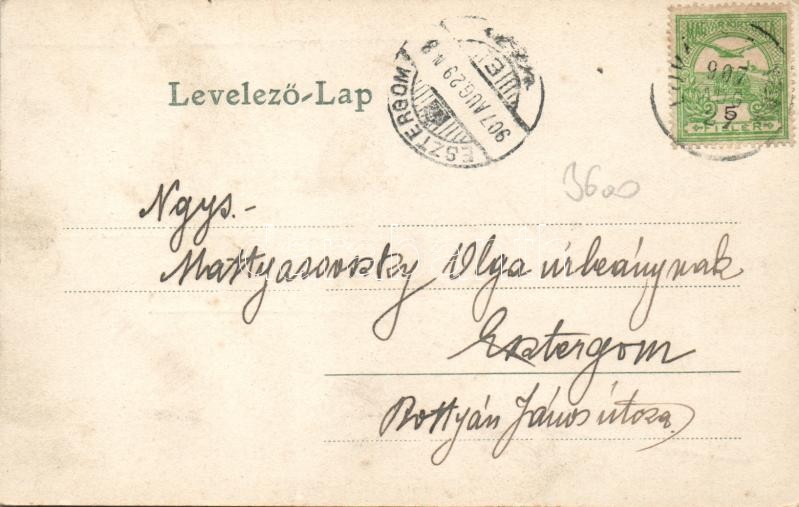 Levelező-Lap
ESZTERGOM
907 AUG. 29
MAGYAR KIR. POSTA
907
5
FILLER
3600
Ngys.-
Mattyasovszky Olga úrleánynak
Esztergom
Bottyán János útcza